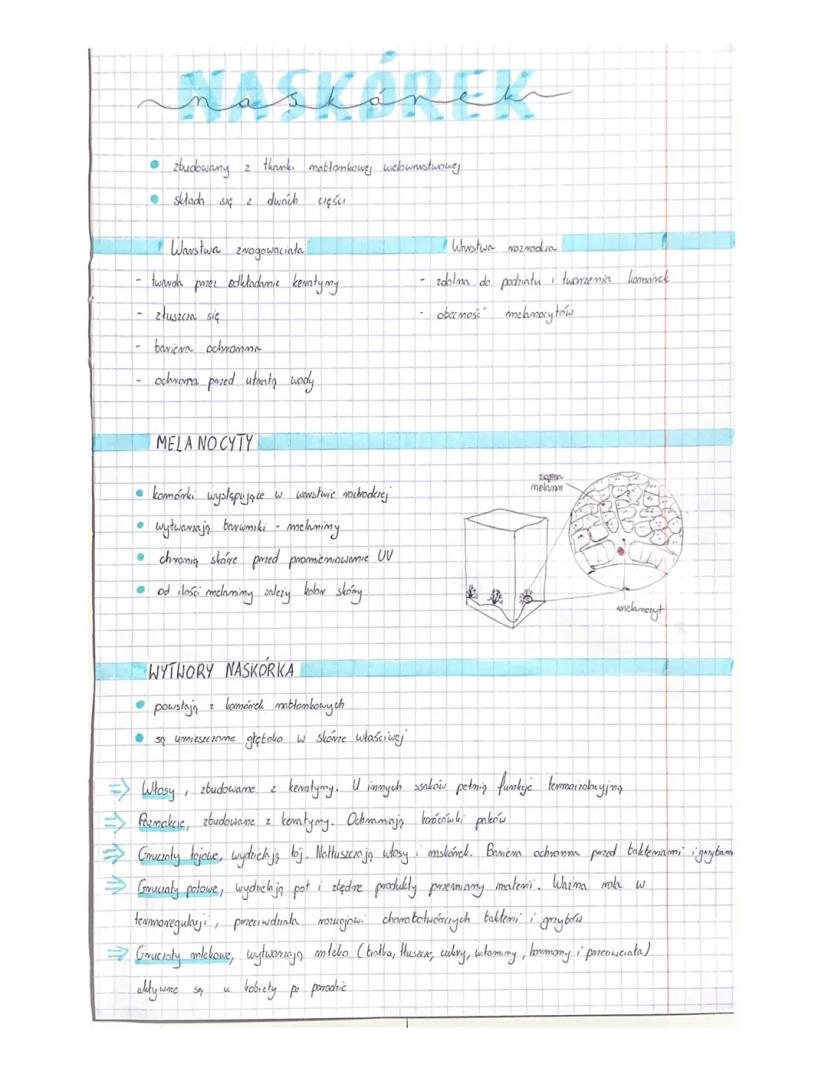 NASKÓREK
naskórek
zbudowany z tkanki nabłonkowej wielowarstwowej
składa się z dwóch części
Warstwa zrogowaciała
Warstwa rozrodcza
- twarda przez odkładanie keratyny
- zdolna do podziału i tworzenia komórek
- złuszcza się
- obecność melanocytów
- bariera ochronna
- ochrona przed utratą wody
MELANOCYTY
komórki występujące w warstwie rozrodczej
wytwarzają barwniki - melaniny
chronią skórę przed promieniowanie UV
od ilości melaniny zależy kolor skóry
ziarna
melanin
melanocyt
WYTWORY NASKÓRKA
powstają z komórek nabłonkowych
są umieszczone głęboko w skórze właściwej
⇒ Włosy, zbudowane z keratyny. U innych ssaków pełnią funkcję termoizolacyjną
⇒ Paznokcie, zbudowane z keratyny. Ochraniają końcówki palców
⇒ Gruczoły łojowe, wydzielają łój. Natłuszczają włosy i naskórek. Bariera ochronna przed bakteriami i grzybami
⇒ Gruczoły potowe, wydzielają pot i zbędne produkty przemiany materii. Ważna rola w
termoregulacji, przeciwdziała rozwojowi chorobotwórczych bakterii i grzybów
⇒ Gruczoły mlekowe, wytwarzają mleko (białka, tłuszcze, cukry, witaminy, hormony i przeciwciała)
aktywne są u kobiety po porodzie